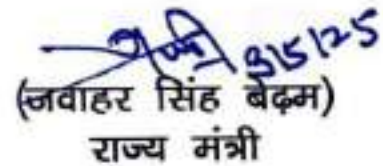 3/5/25
(जवाहर सिंह बेढ़म)
राज्य मंत्री